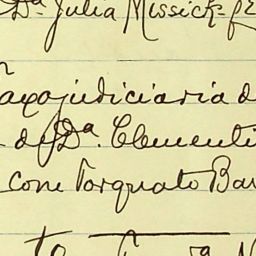 Dª Julia Missick=
Taxojudiciaria d
de Dª. Clementi
con Torquato Bar